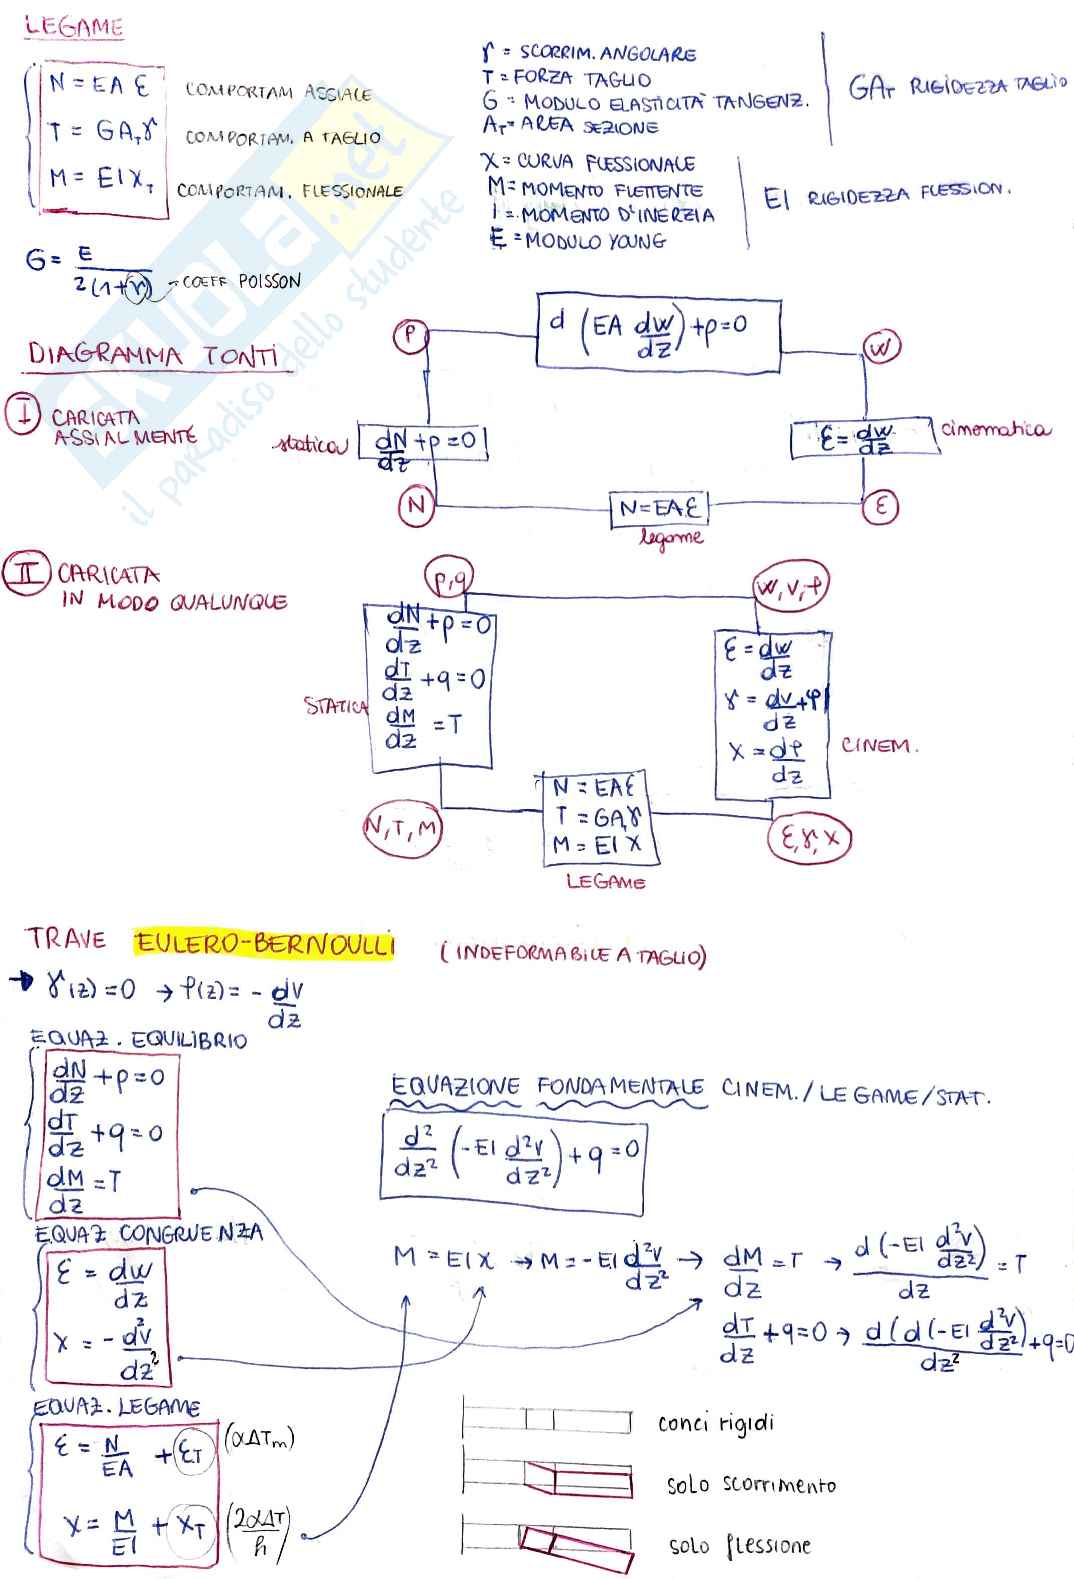 LEGAME
N = EA ε COMPORTAM ASSIALE
T = GA_T γ COMPORTAM. A TAGLIO
M = EI χ_T COMPORTAM. FLESSIONALE
γ = SCORRIM. ANGOLARE
T = FORZA TAGLIO
G = MODULO ELASTICITÀ TANGENZ.
A_T = AREA SEZIONE
GA_T RIGIDEZZA TAGLIO
χ = CURVA FLESSIONALE
M = MOMENTO FLETTENTE
I = MOMENTO D'INERZIA
E = MODULO YOUNG
EI RIGIDEZZA FLESSION.
G = E / 2(1+ν) → COEFF POISSON
SKUOLA.net
il paradiso dello studente
DIAGRAMMA TONTI
I CARICATA
ASSIALMENTE
P
d (EA dw/dz) + p = 0
W
statica
dN/dz + p = 0
ε = dw/dz
cinematica
N
N = EA ε
legame
ε
II CARICATA
IN MODO QUALUNQUE
p,q
w, v, φ
STATICA
dN/dz + p = 0
dT/dz + q = 0
dM/dz = T
ε = dw/dz
γ = dv/dz + φ
χ = dφ/dz
CINEM.
N, T, M
N = EA ε
T = GA, γ
M = EI χ
LEGAME
ε, γ, χ
TRAVE EULERO-BERNOULLI (INDEFORMABILE A TAGLIO)
→ γ(z) = 0 → φ(z) = - dv/dz
EQUAZ. EQUILIBRIO
dN/dz + p = 0
dT/dz + q = 0
dM/dz = T
EQUAZIONE FONDAMENTALE CINEM./LEGAME/STAT.
d²/dz² (-EI d²v/dz²) + q = 0
EQUAZ CONGRUENZA
ε = dw/dz
χ = - d²v/dz²
M = EI χ → M = -EI d²v/dz² → dM/dz = T → d(-EI d²v/dz²)/dz = T
dT/dz + q = 0 → d(d(-EI d²v/dz²)/dz² + q = 0
EQUAZ. LEGAME
ε = N/EA + ε_T (αΔT_m)
χ = M/EI + χ_T (2αΔT/h)
conci rigidi
solo scorrimento
solo flessione